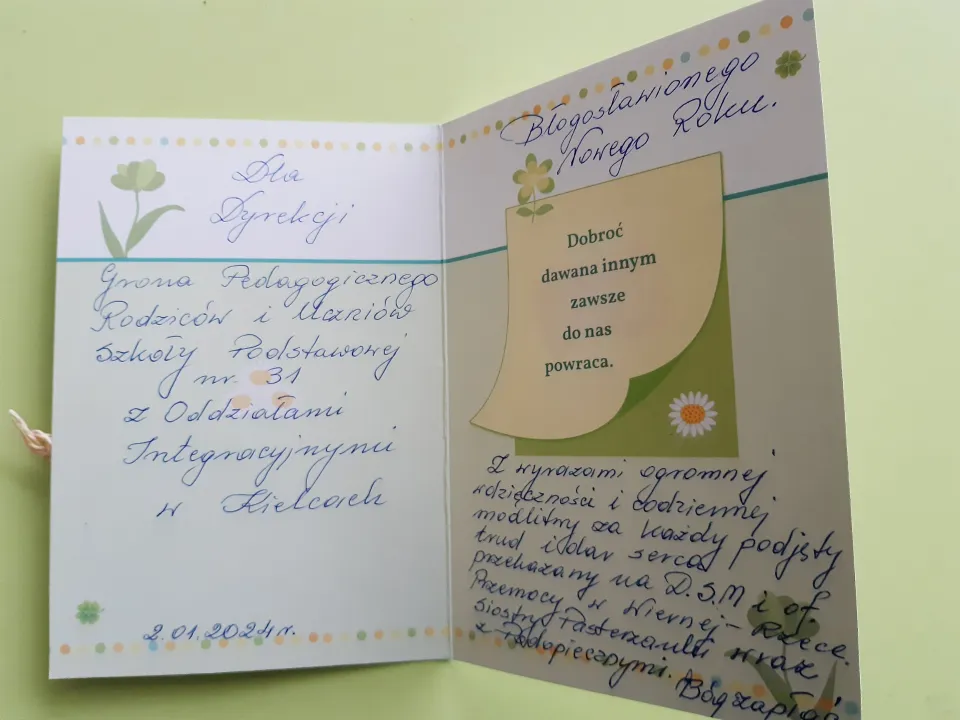 Dla
Dyrekcji
Grona Pedagogicznego
Rodziców i Uczniów
Szkoły Podstawowej
nr. 31
z Oddziałami
Integracyjnymi
w Kielcach
2.01.2024 r.
Błogosławionego
Nowego Roku.
Dobroć
dawana innym
zawsze
do nas
powraca.
Z wyrazami ogromnej
wdzięczności i codziennej
modlitwy za każdy podjęty
trud i dar serca
przekazany na D.S.M i of.
Przemocy w Wiernej - Rzece.
Siostry Pasterzanki wraz
z Podopiecznymi.
Bóg zapłać